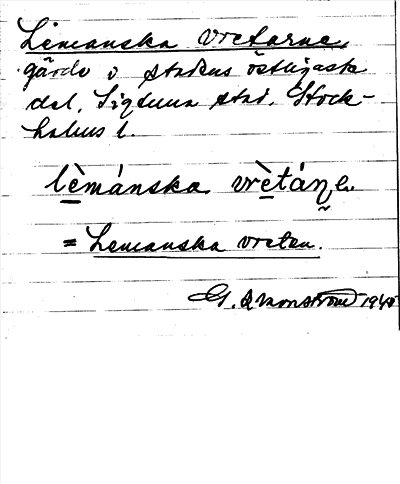 Lemanska vretarne,
gärde i stadens östligaste
del, Sigtuna stad, Stock-
holms l.
lèmánska vrètáṇe.
= Lemanska vreten.
G. 1940